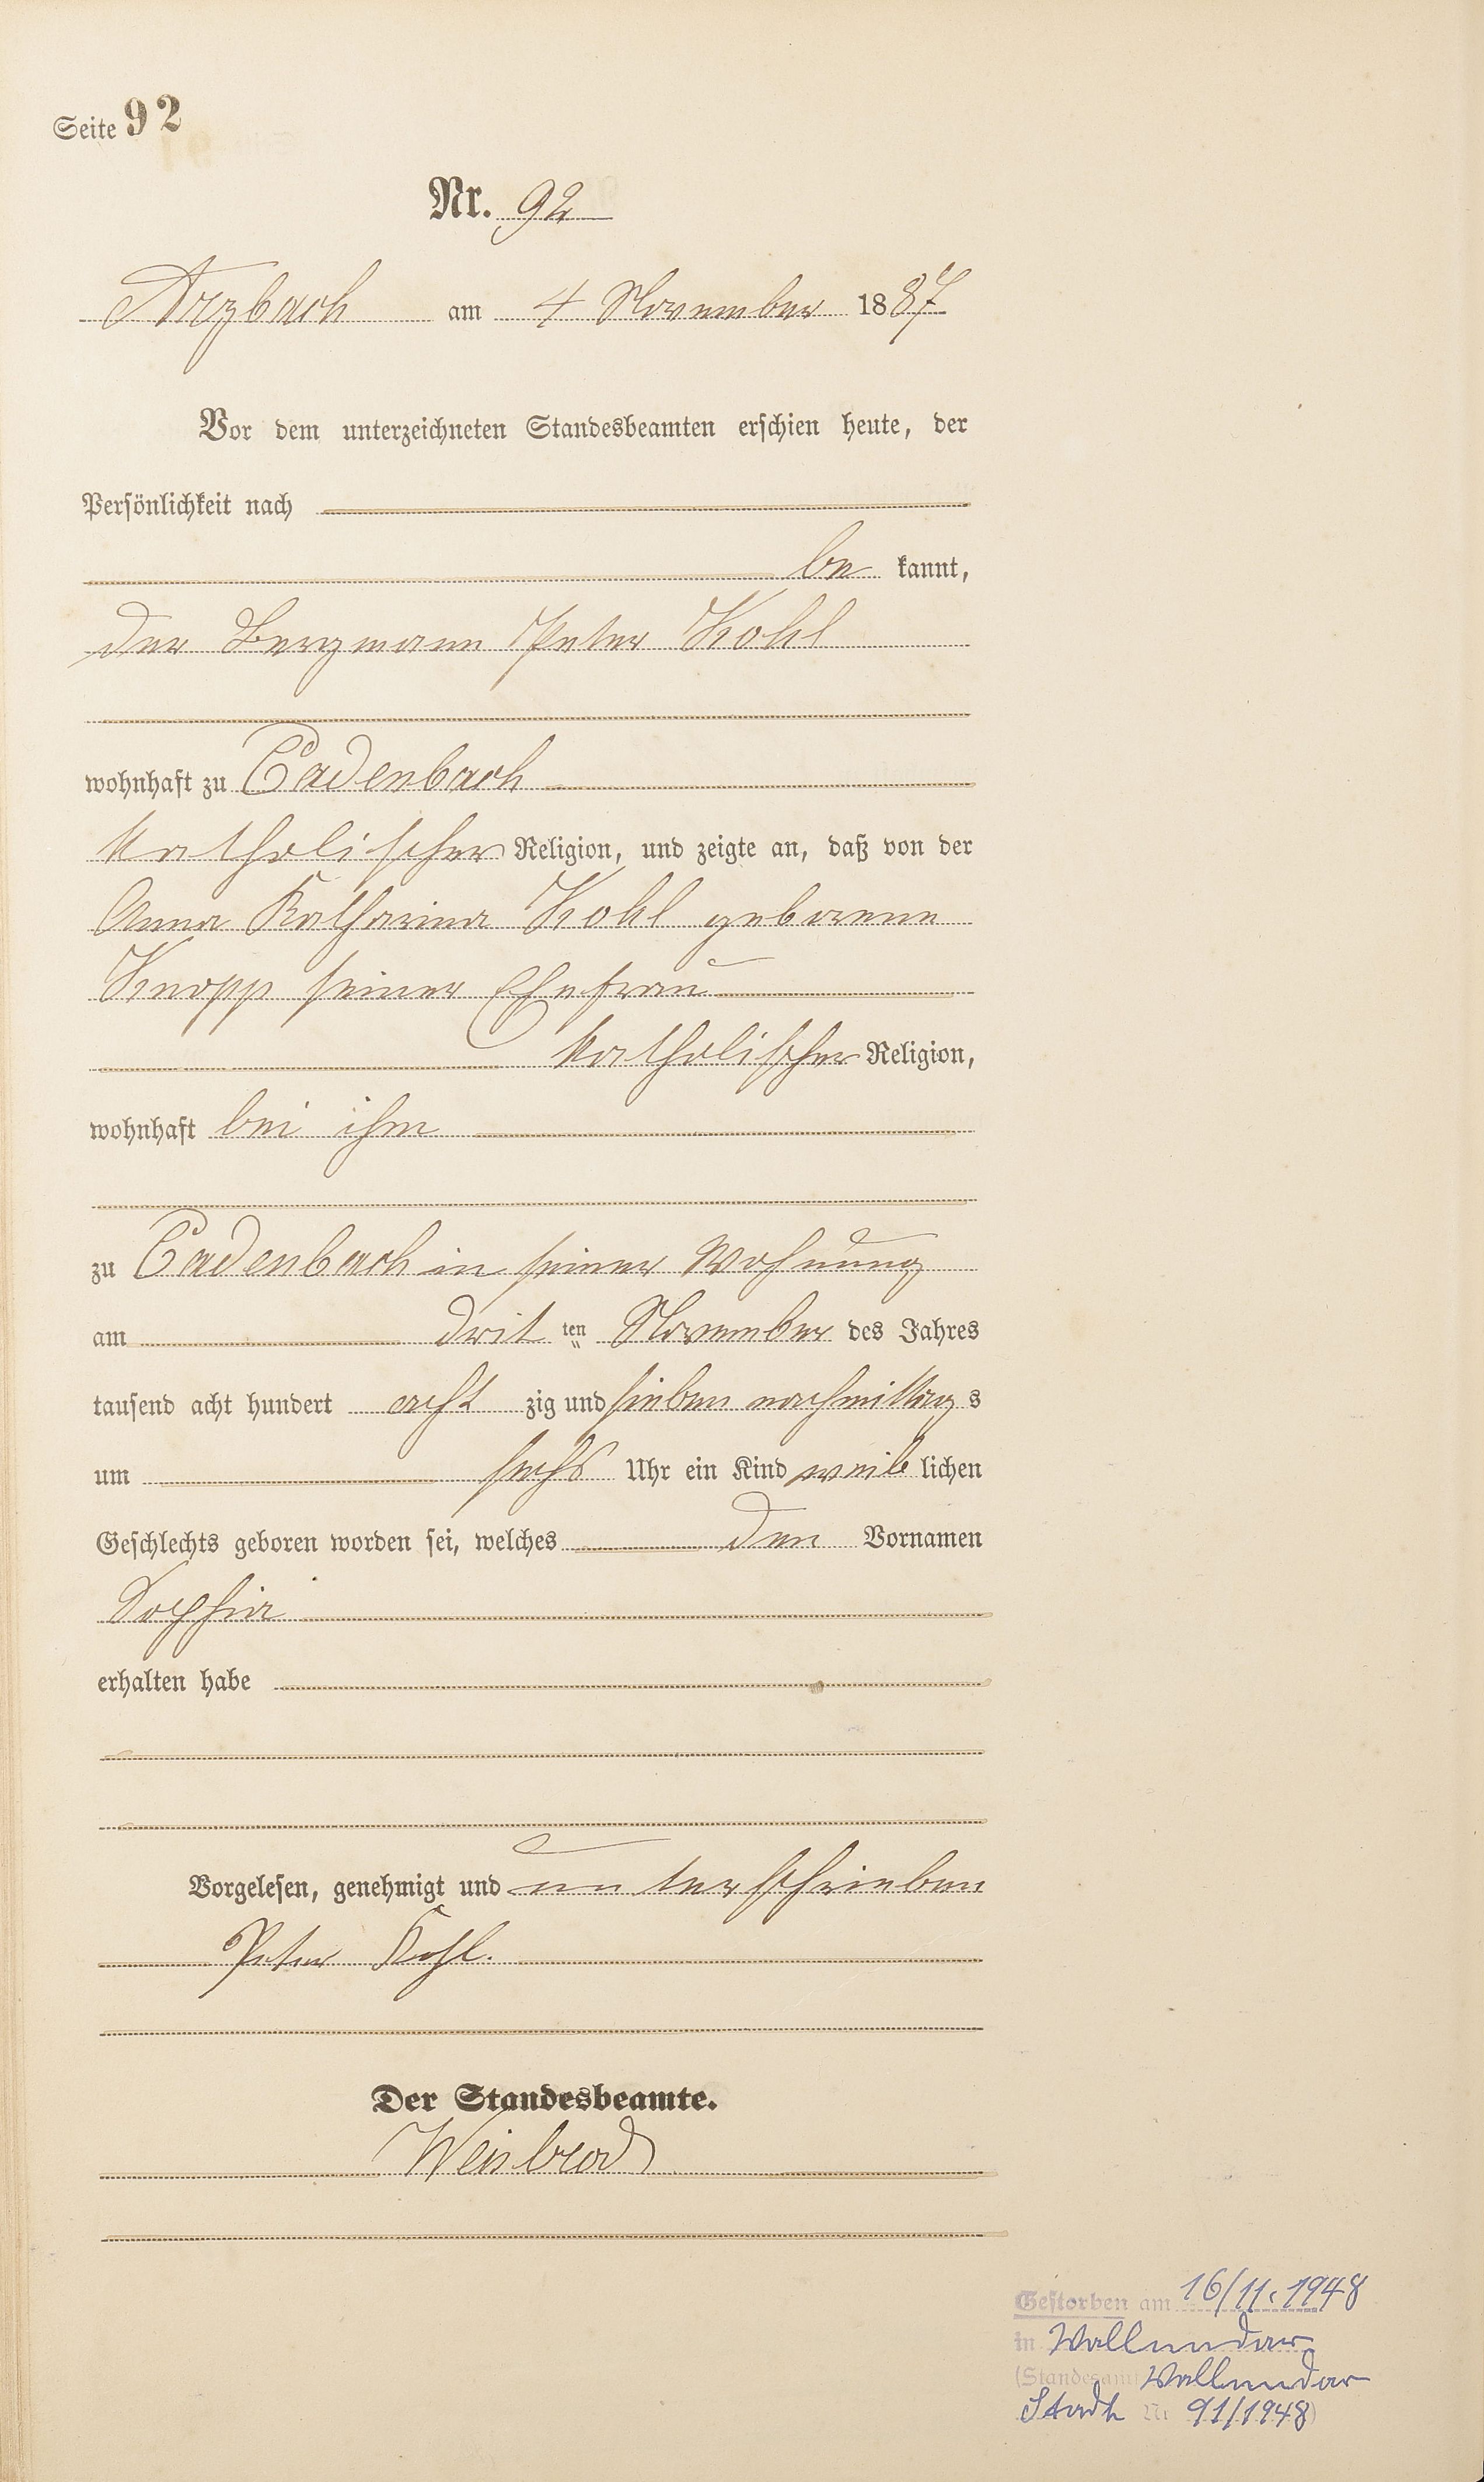 Seite 92
Nr. 92
Arzbach am 4 November 1887
Vor dem unterzeichneten Standesbeamten erschien heute, der
Persönlichkeit nach
be kannt,
der Bergmann Peter Kohl
wohnhaft zu Cadenbach
katholischer Religion, und zeigte an, daß von der
Anna Katharina Kohl geborene
Knopp seiner Ehefrau
katholischer Religion,
wohnhaft bei ihm
zu Cadenbach in seiner Wohnung
am drit ten November des Jahres
tausend acht hundert acht zig und sieben nachmittag s
um sechs Uhr ein Kind weib lichen
Geschlechts geboren worden sei, welches den Vornamen
Sophia
erhalten habe
Vorgelesen, genehmigt und unterschrieben
Peter Kohl.
Der Standesbeamte.
Weisbrod
Gestorben am 16/11.1948
in Vallendar
(Standesamt Vallendar
Stadt Nr 91/1948)